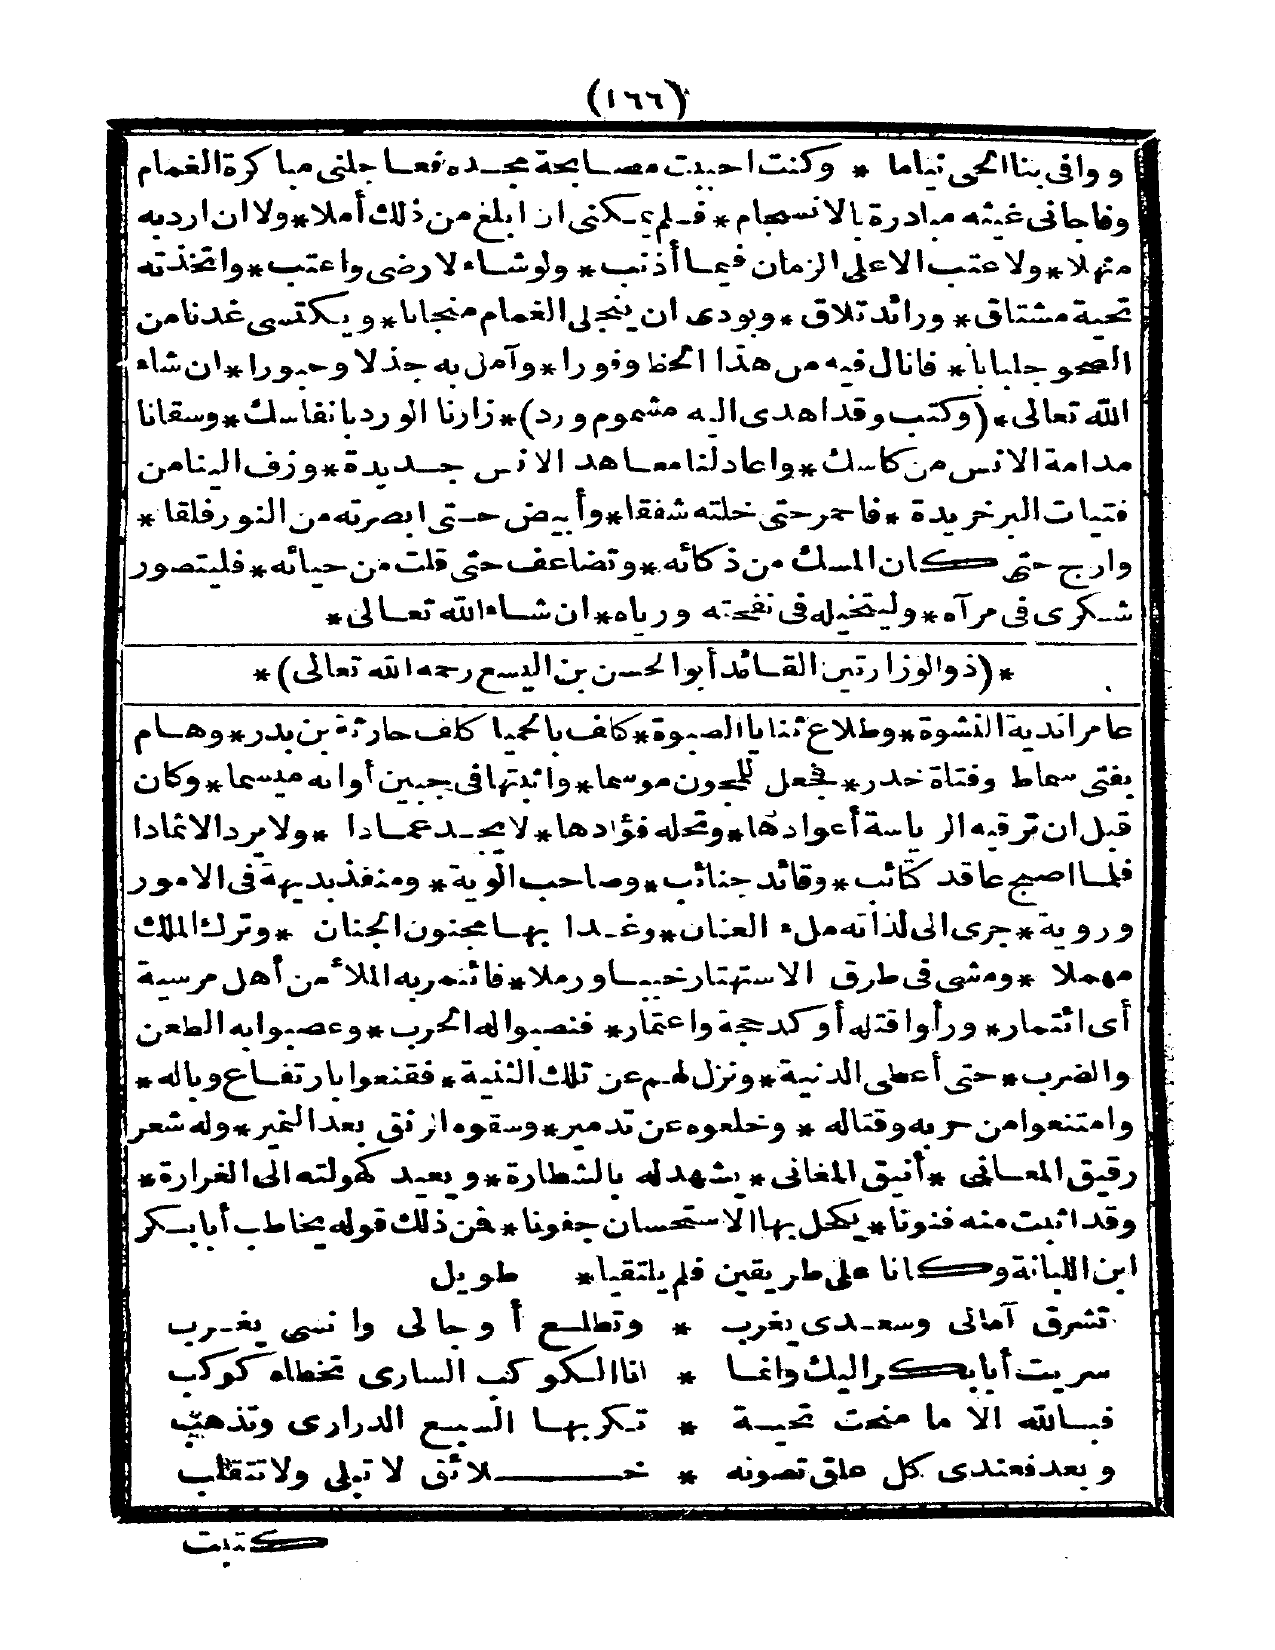 (١٦٦)
ووافى بنا الحى نياما * وكنت احببت مصابحة مجده فعاجلنى مباكرة الغمام
وفاجانى غيثه مبادرة بالانسجام * فلم يمكنى ان ابلغ من ذلك أملا * ولا ان ارد به
منهلا * ولا عتب الا على الزمان فيما أذنب * ولو شاء لارضى واعتب * واتخذته
تحية مشتاق * ورائد تلاق * وبودى ان ينجلى الغمام منجابا * ويكتسى غدنا من
الصحو جلبابا * فانال فيه من هذا الحظ وفورا * وآمل به جذلا وحبورا * ان شاء
الله تعالى * (وكتب وقد اهدى اليه مشموم ورد) * زارنا الورد بانفاسك * وسقانا
مدامة الانس من كاسك * واعاد لنا معاهد الانس جديدة * وزف الينا من
فتيات البر خريدة * فاحمر حتى خلته شفقا * وأبيض حتى ابصرته من النور فلقا *
وارج حتى كان المسك من ذكائه * وتضاعف حتى قلت من حيائه * فليتصور
شكرى فى مرآه * وليتخيله فى نفحته ورياه * ان شاء الله تعالى *
* (ذو الوزارتين القائد أبو الحسن بن اليسع رحمه الله تعالى) *
عامر اندية النشوة * وطلاع ثنايا الصبوة * كلف بالحميا كلف حارثة بن بدر * وهام
بفتى سماط وفتاة خدر * فجعل للمجون موسما * واثبتها فى جبين أوانه ميسما * وكان
قبل ان ترقيه الرياسة أعوادها * وتحله فؤادها * لا يجد عمادا * ولا يرد الاثمادا
فلما اصبح عاقد كتائب * وقائد جنائب * وصاحب الوية * ومنفذ بديهة فى الامور
وروية * جرى الى لذاته ملء العنان * وغدا بها مجنون الجنان * وترك الملك
مهملا * ومشى فى طرق الاستهتار خببا ورملا * فائتمر به الملأ من أهل مرسية
أى ائتمار * ورأوا قتله أوكد حجة واعتمار * فنصبوا له الحرب * وعصبوا به الطعن
والضرب * حتى أعطى الدنية * ونزل لهم عن تلك الثنية * فقنعوا بارتفاع وباله *
وامتنعوا من حربه وقتاله * وخلعوه عن تدمير * وسقوه الرنق بعد النمير * وله شعر
رقيق المعانى * أنيق المغانى * يشهد له بالشطارة * ويعيد كهولته الى الغرارة *
وقد اثبت منه فنونا * يكحل بها الاستحسان جفونا * فمن ذلك قوله يخاطب أبا بكر
ابن اللبانة وكانا على طريقين فلم يلتقيا * طويل
تشرق آمالى وسعدى يغرب * وتطلع أوجالى وانسى يغرب
سريت أبا بكر اليك وانما * انا الكوكب السارى تخطاه كوكب
فبالله الا ما منحت تحية * تكر بها السبع الدرارى وتذهب
وبعد فعندى كل علق تصونه * خلائق لا تبلى ولا تتقلب
كتبت